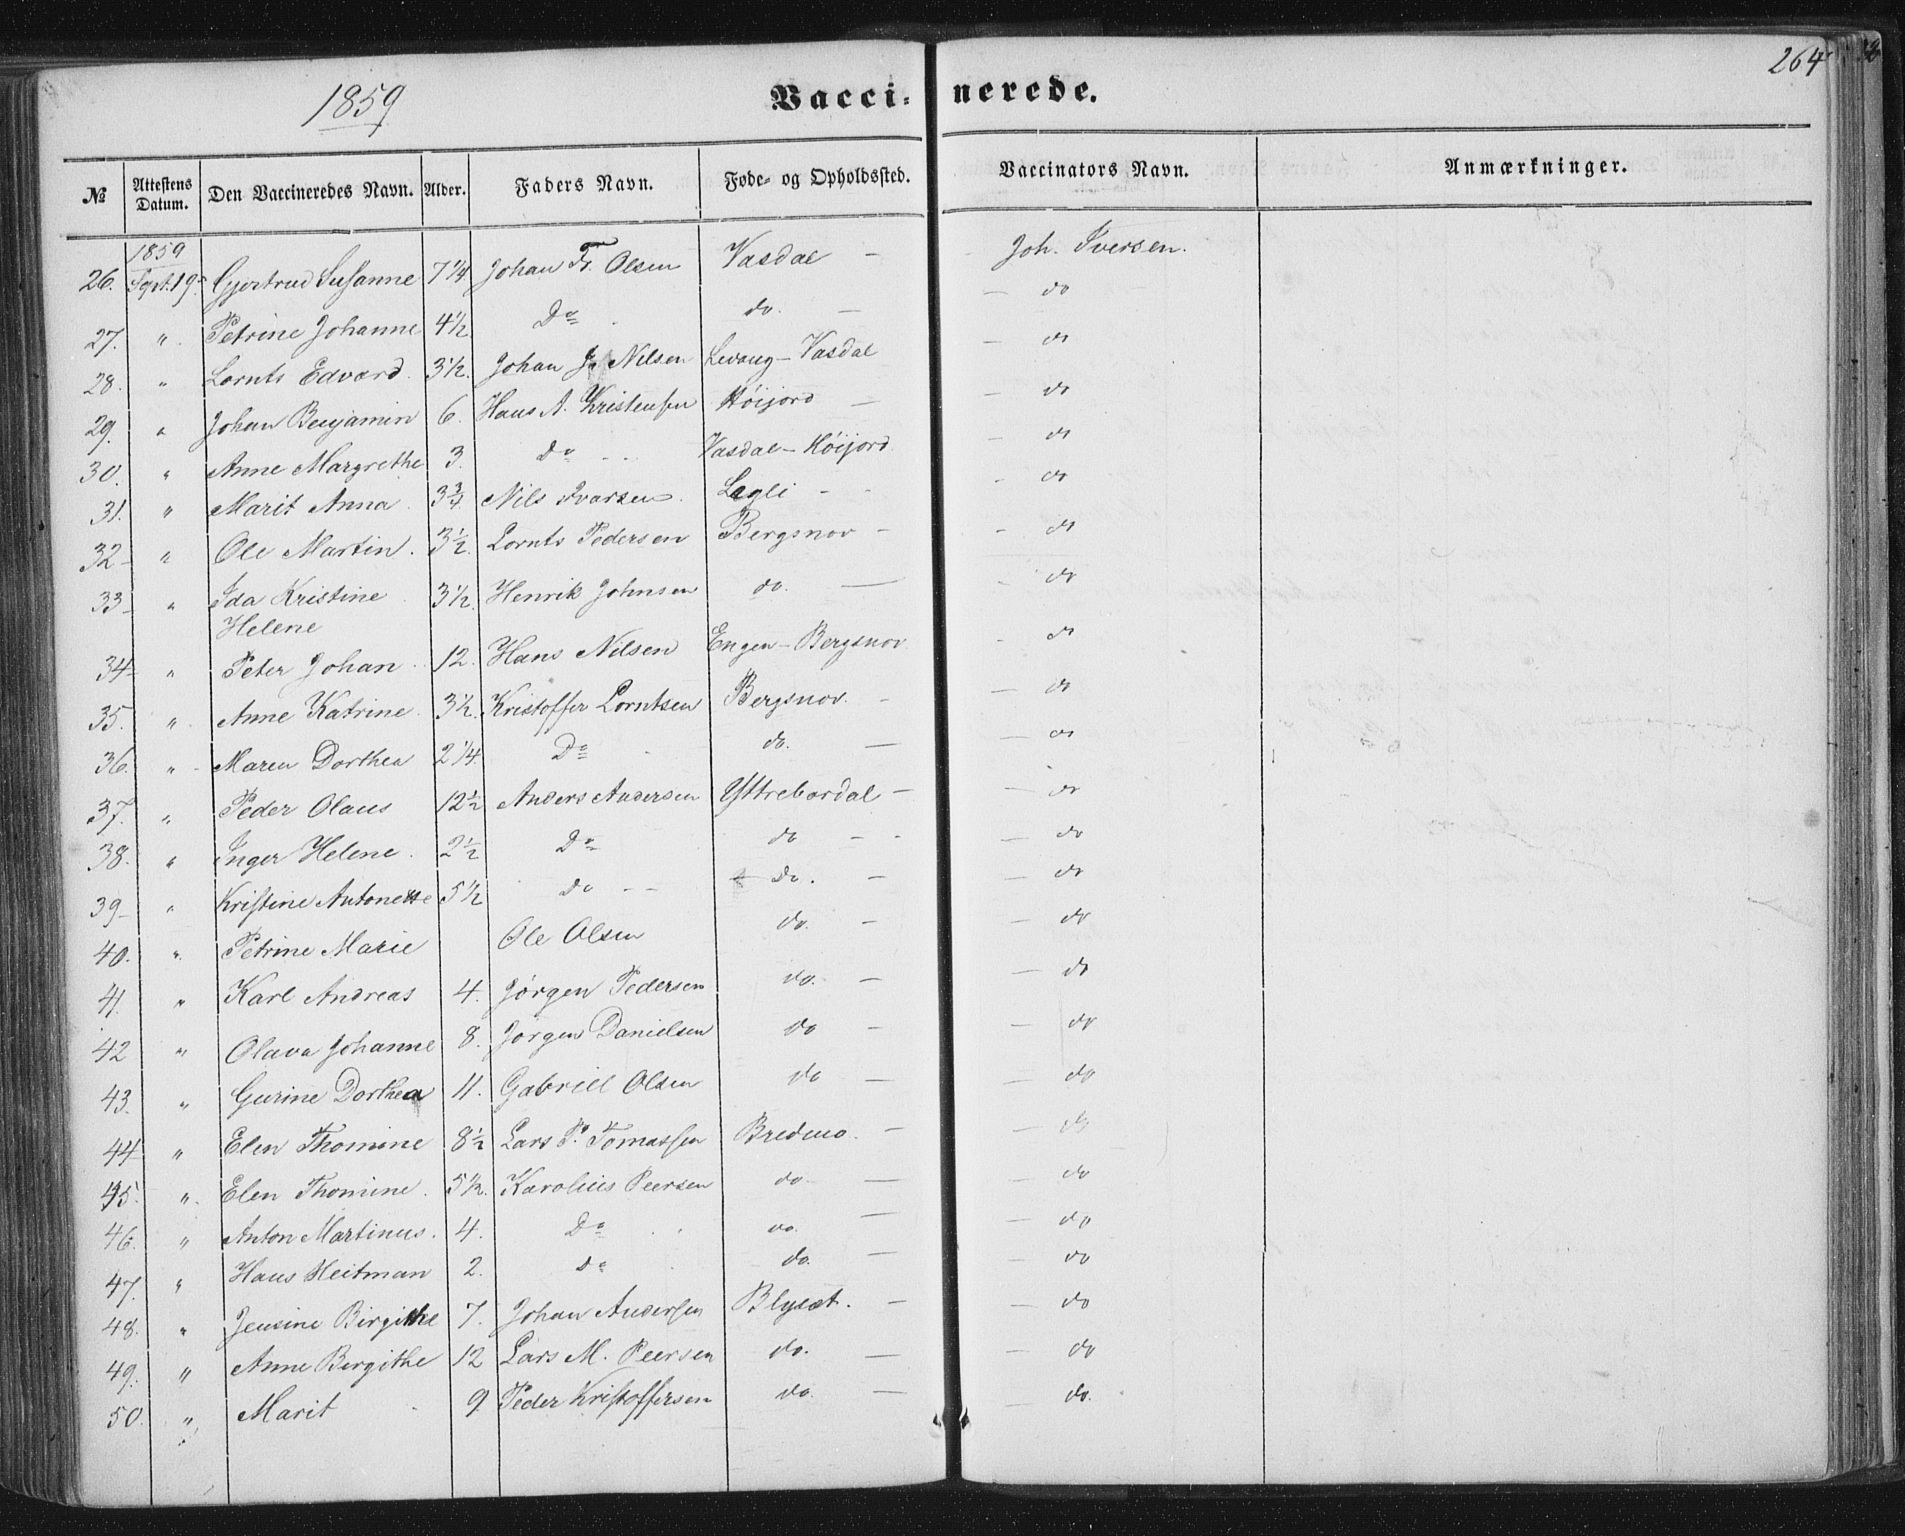 264
1859 Vaccinerede.
№ Attestens Datum. Den Vaccineredes Navn. Alder. Faders Navn. Føde- og Opholdssted. Vaccinators Navn. Anmærkninger.
1859
26. Sept. 19. Gjertrud Susanne 7 1/4 Johan Fr. Olsen Vasdal — Joh. Iversen.
27. " Petrine Johanne 4 1/2 Do do. — — do
28. " Lornts Edvard. 3 1/2. Johan J. Nilsen Levang - Vasdal — do
29. " Johan Benjamin 6. Hans A. Kristensen Høijord — — do
30. " Anne Margrethe 3. Do Vasdal - Høijord — do
31. " Marit Anna 3 3/4 Nils Ivarsen Legli - - — do
32 " Ole Martin. 3 1/2. Lornts Pedersen Bergsnov - — do
33 " Ida Kristine 3 1/2. Henrik Johnsen do. — — do
Helene
34 " Peter Johan 12. Hans Nilsen Engen - Bergsnov — do
35. " Anne Katrine 3 1/2. Kristoffer Lorntsen Bergsnov. - — do
36. " Maren Dorthea 2 1/4. Do do. — — do
37. " Peder Olaus 12 1/2 Anders Andersen Yttrebardal — — do
38. " Inger Helene. 2 1/2 Do do — — do
39 " Kristine Antonette 5 1/2 do do. — — do
40. " Petrine Marie Ole Olsen do. — — do
41. " Karl Andreas 4. Jørgen Pedersen do. — — do
42 " Olava Johanne 8. Jørgen Danielsen do — — do
43. " Gurine Dorthea 11. Gabriel Olsen do — — do
44 " Elen Thomine 8 1/2 Lars P. Tomassen Bredmo. — — do
45. " Elen Thomine. 5 1/2. Karolius Peersen do. — — do
46. " Anton Martinus. 4. Do do. — — do
47. " Hans Heitman 2. do do. — — do
48. " Jensine Birgithe 7. Johan Andersen Blysæt. — — do
49. " Anne Birgithe 12 Lars M. Peersen do. — — do
50. " Marit 9. Peder Kristoffersen do. — — do.